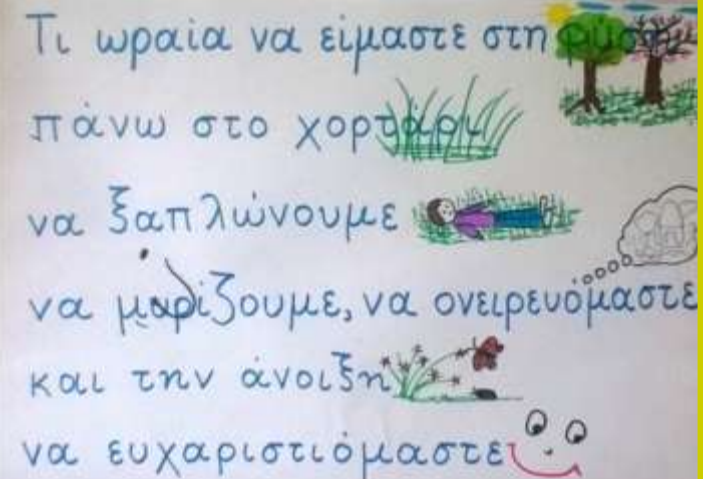 Τι ωραία να είμαστε στη φύση
πάνω στο χορτάρι
να ξαπλώνουμε
να μυρίζουμε, να ονειρευόμαστε
και την άνοιξη
να ευχαριστιόμαστε